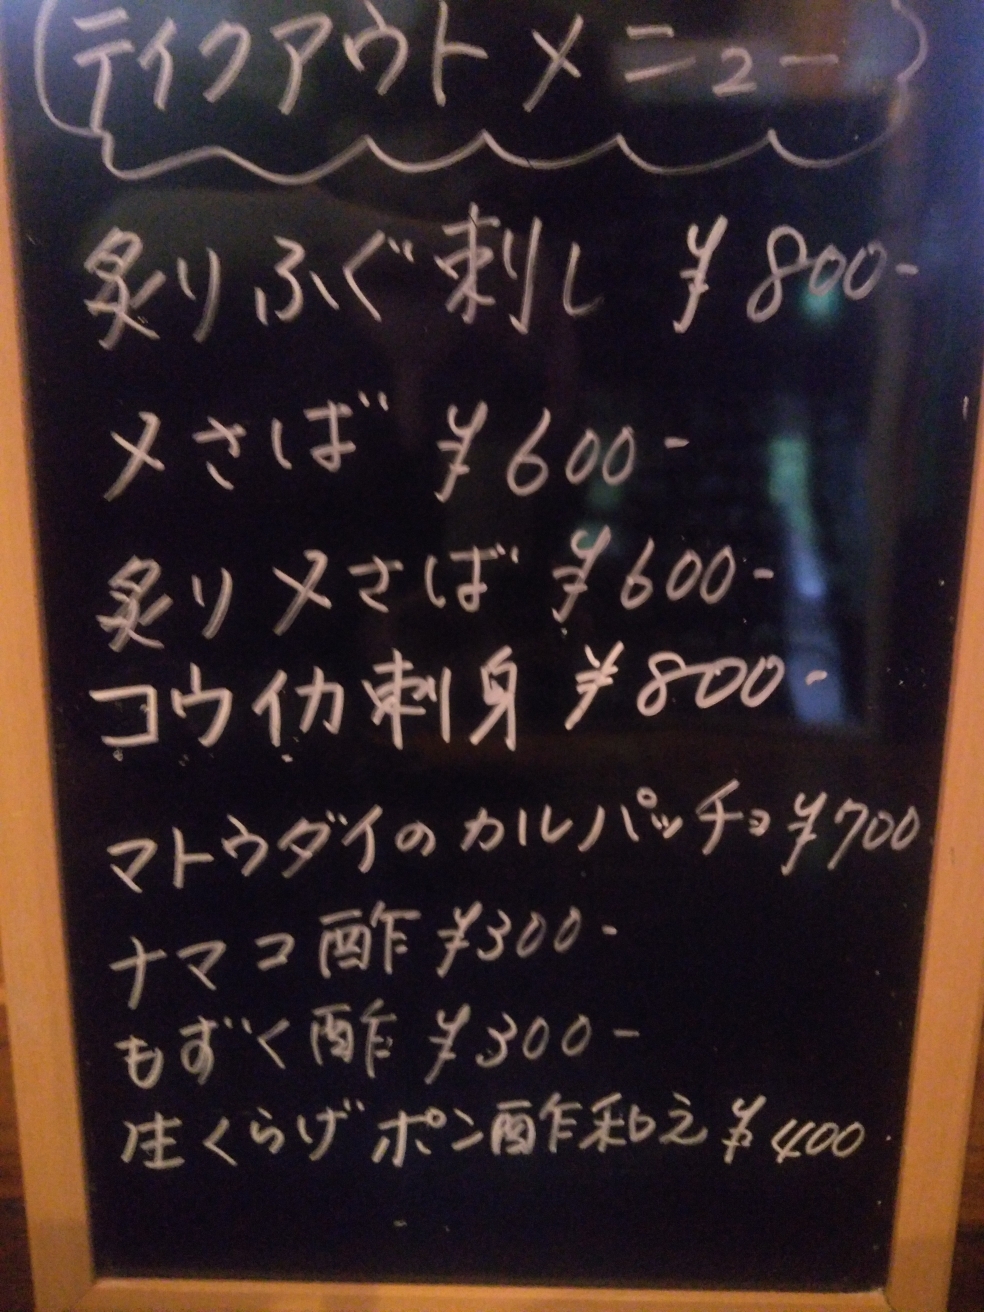 テイクアウトメニュー
炙りふぐ刺し ¥800-
〆さば ¥600-
炙り〆さば ¥600-
コウイカ刺身 ¥800-
マトウダイのカルパッチョ ¥700
ナマコ酢 ¥300-
もずく酢 ¥300-
生くらげポン酢和え ¥400